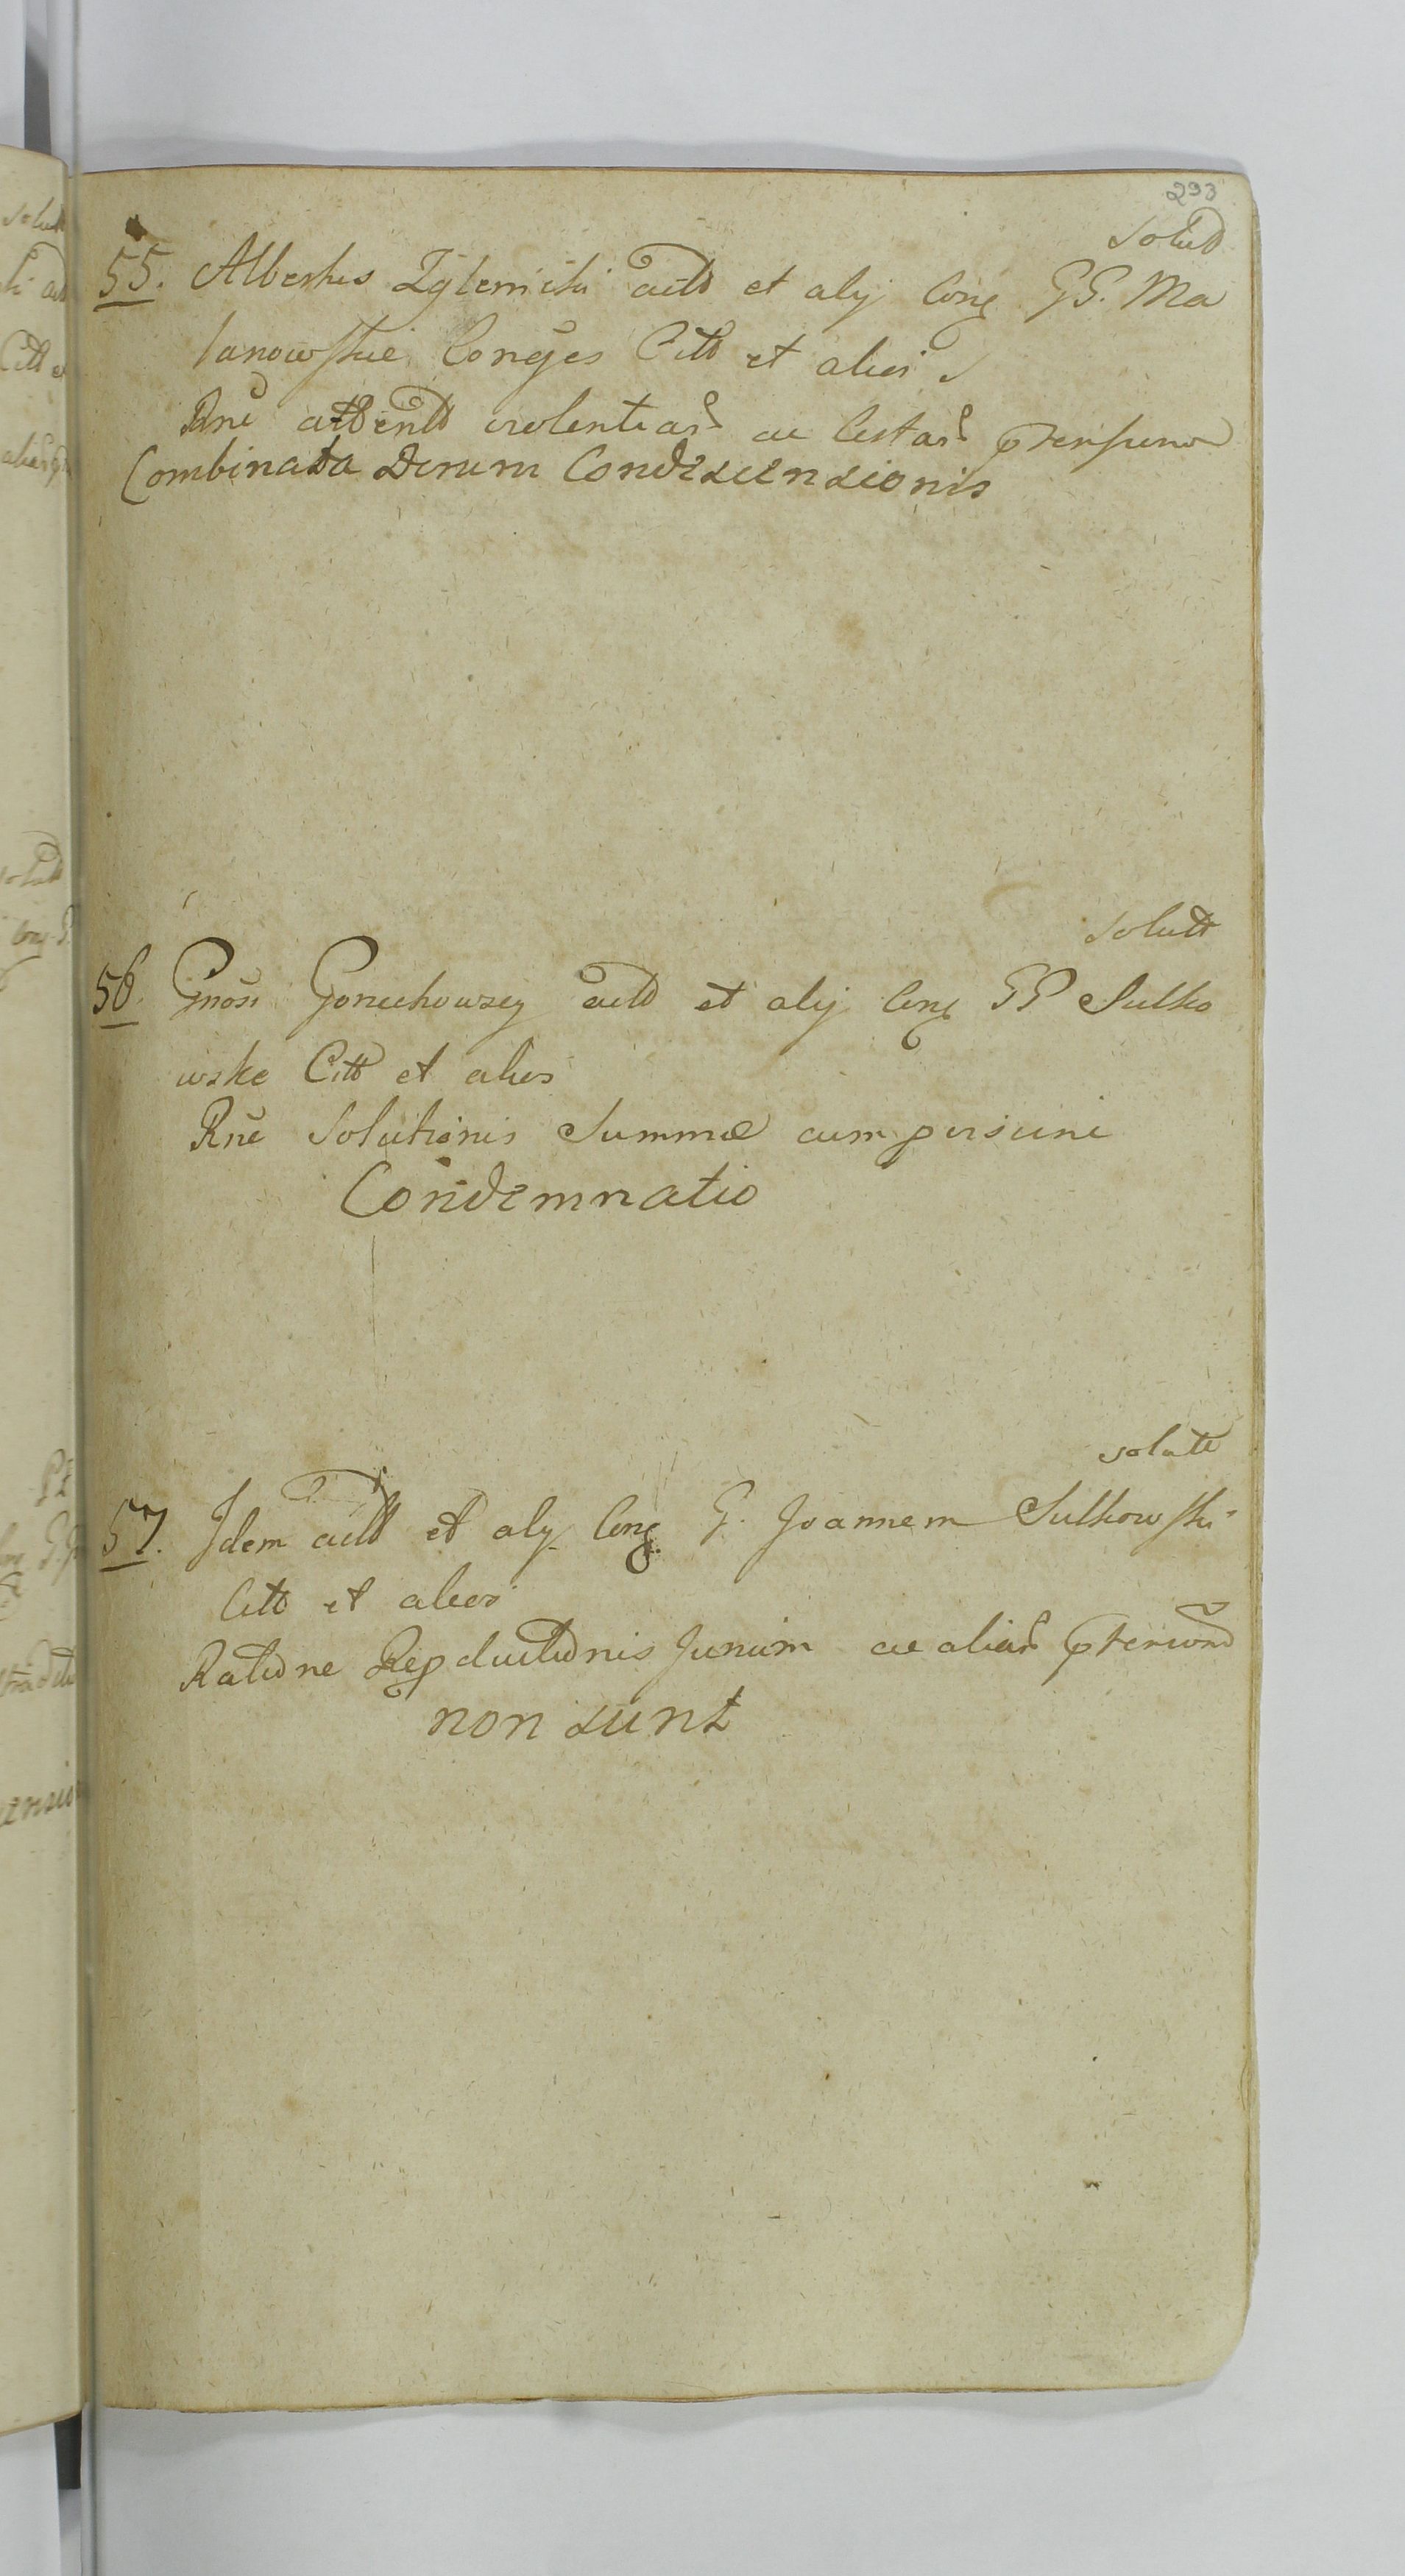 293
Solutt
55. Albertus Zglenicki actt et alij Cong GG. Ma
lanowskie Conges Citt et alios
Rne attentt violentiar ac Certar
Combinata Dnrum Condescensionis
Solutt
56. Gnosi Gorzechowscy actt et alij Cong GG Sulko
wskie Citt et alios
Rne Solutionis Summae cum
Condemnatio
solutt
57. Idem actt et alij Cong. G. Joannem Sulkowski
Citt et alios
Ratione Repductionis Jurium ac aliar
non sunt